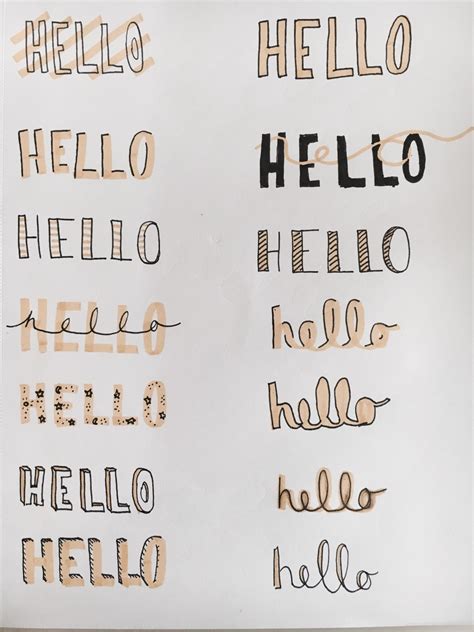 HELLO HELLO
HELLO HELLO hello
HELLO HELLO
HELLO hello hello
HELLO hello
HELLO hello
HELLO hello